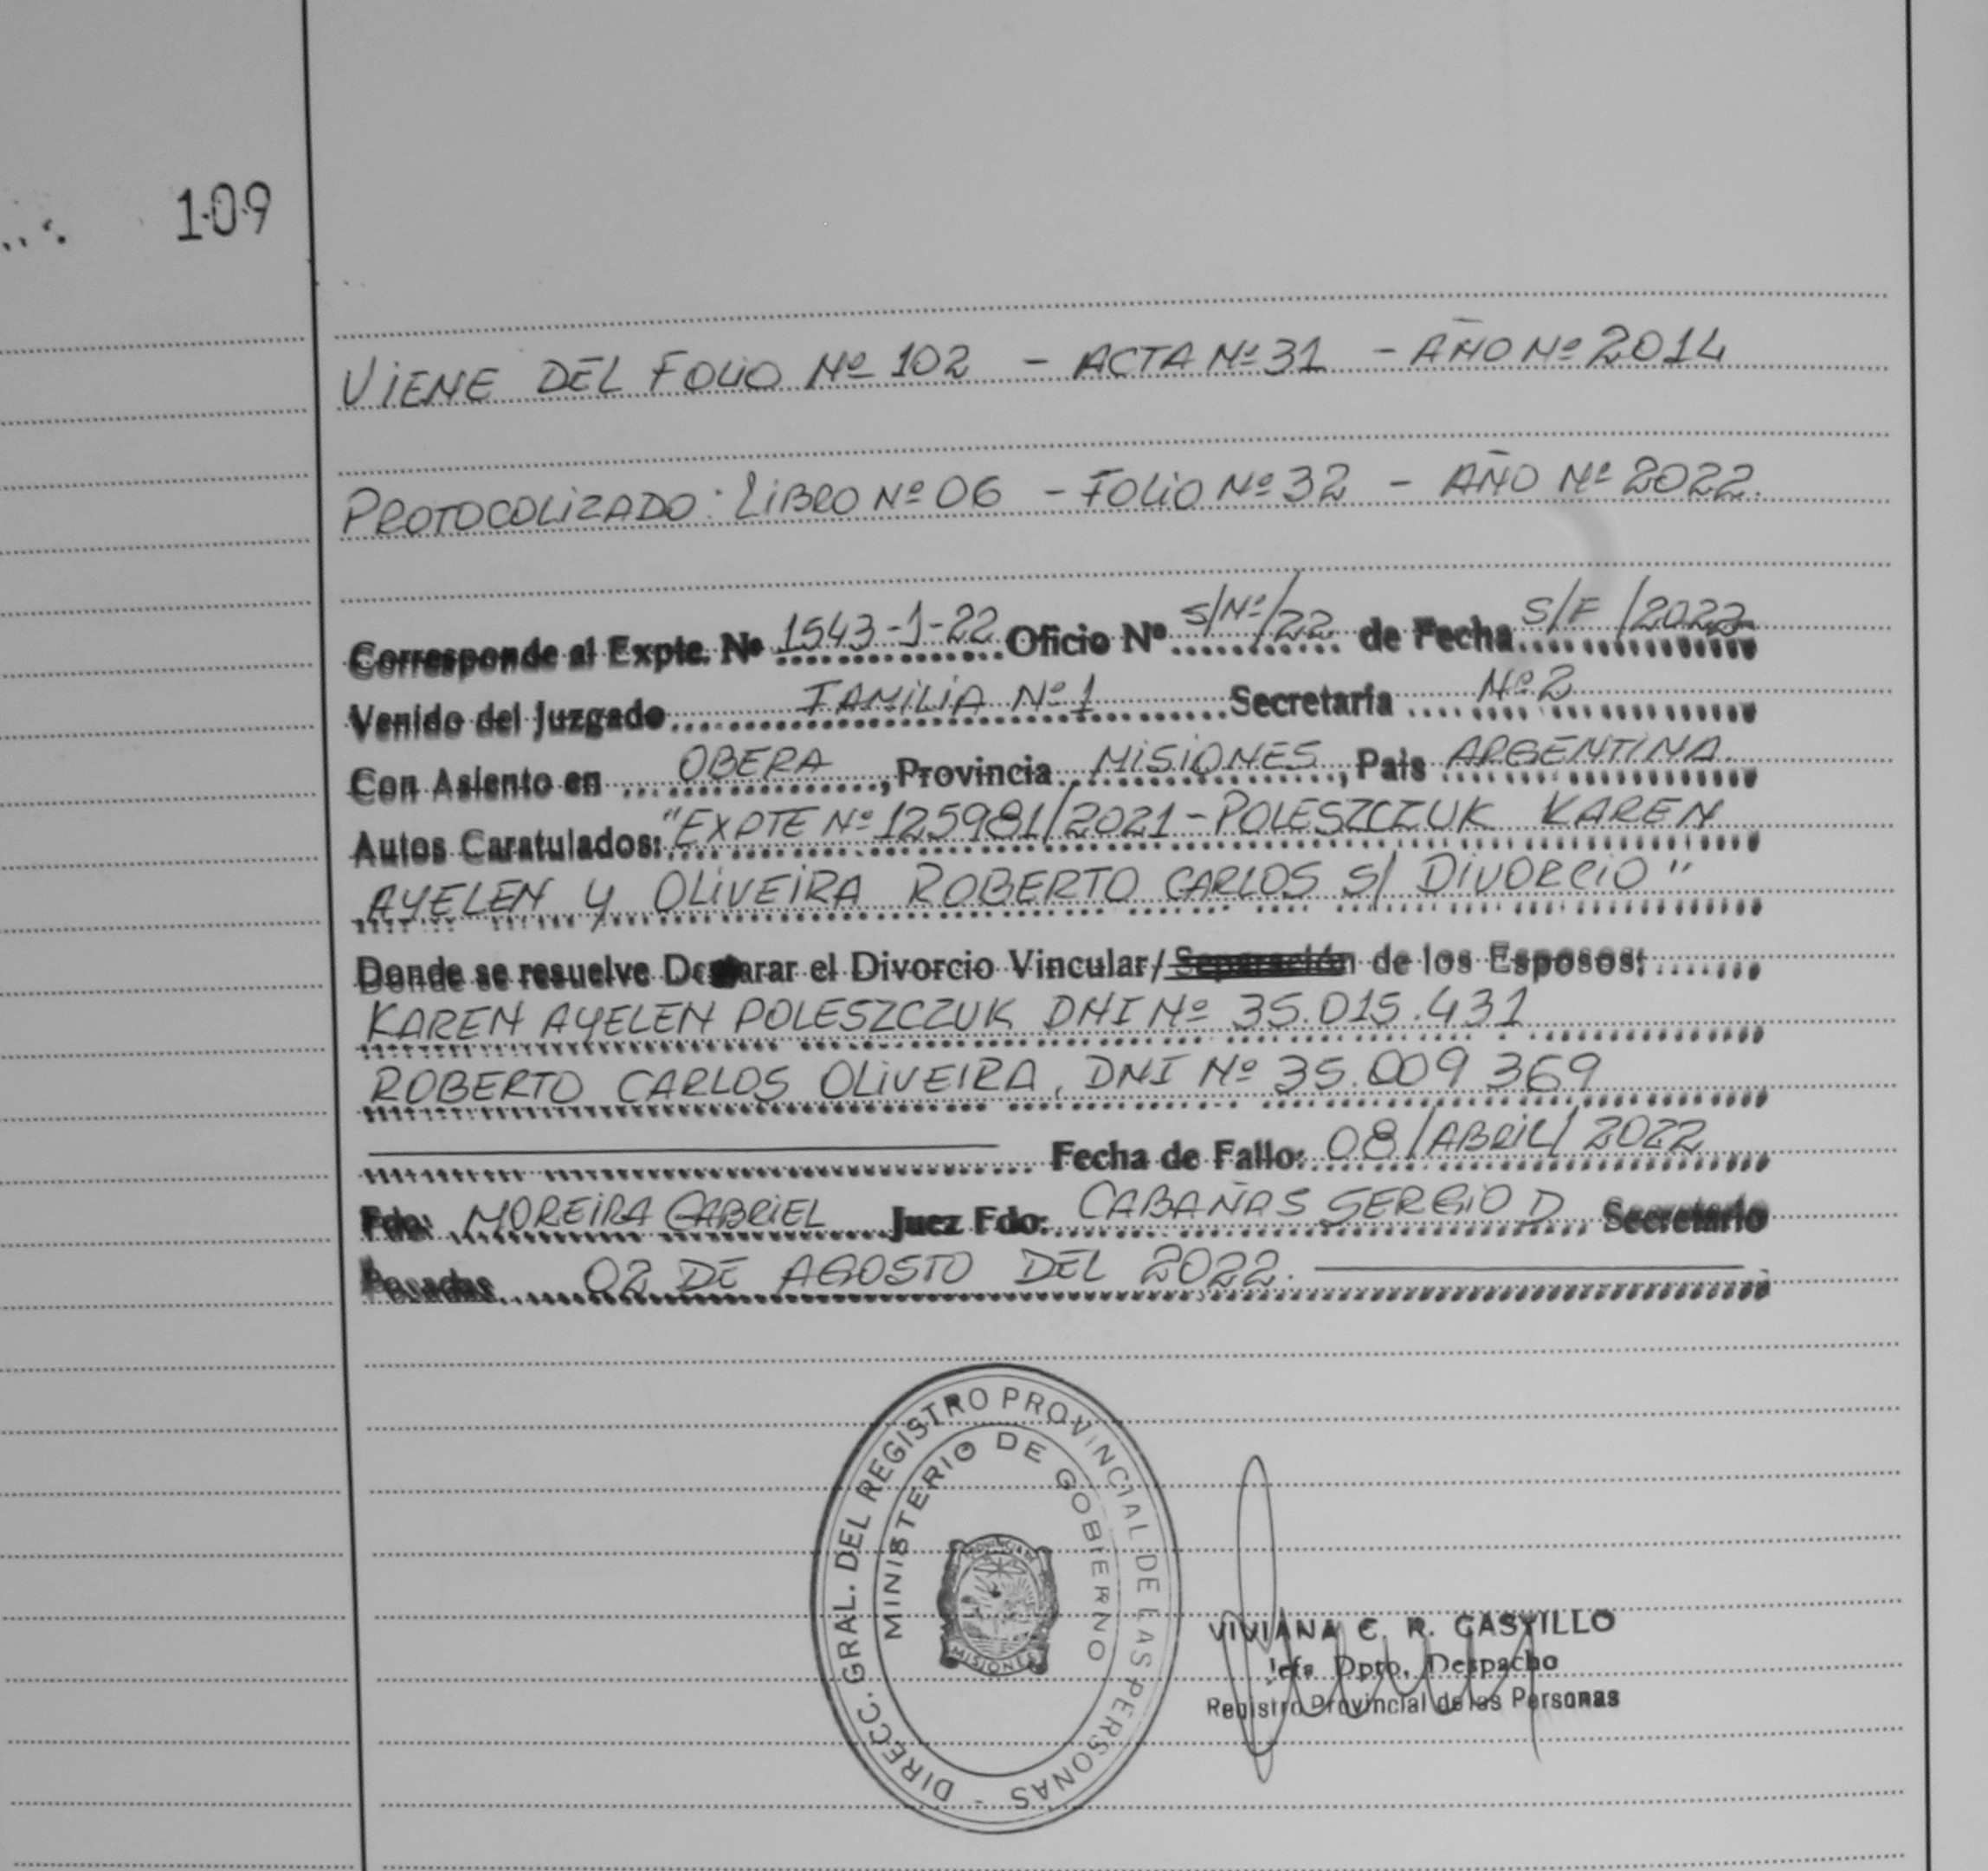 109
VIENE DEL FOLIO Nº 102 - ACTA Nº 31 - AÑO Nº 2014
PROTOCOLIZADO: LIBRO Nº 06 - FOLIO Nº 32 - AÑO Nº 2022.
Corresponde al Expte. Nº 1543-1-22 Oficio Nº S/Nº/22 de Fecha S/F/2022
Venido del Juzgado FAMILIA Nº 1 Secretaría Nº 2
Con Asiento en OBERA, Provincia MISIONES, País ARGENTINA.
Autos Caratulados: "EXPTE Nº 125981/2021 - POLESZCZUK KAREN
AYELEN Y OLIVEIRA ROBERTO CARLOS S/ DIVORCIO"
Donde se resuelve Declarar el Divorcio Vincular/Separación de los Esposos:
KAREN AYELEN POLESZCZUK DNI Nº 35.015.431
ROBERTO CARLOS OLIVEIRA, DNI Nº 35.009 369
Fecha de Fallo: 08/ABRIL/2022
Fdo: MOREIRA GABRIEL Juez Fdo: CABAÑAS SERGIO D. Secretario
Posadas, 02 DE AGOSTO DEL 2022.
DIRECC. GRAL. DEL REGISTRO PROVINCIAL DE LAS PERSONAS -
MINISTERIO DE GOBIERNO
MISIONES
VIVIANA C. R. CASTILLO
Jefa Dpto. Despacho
Registro Provincial de las Personas